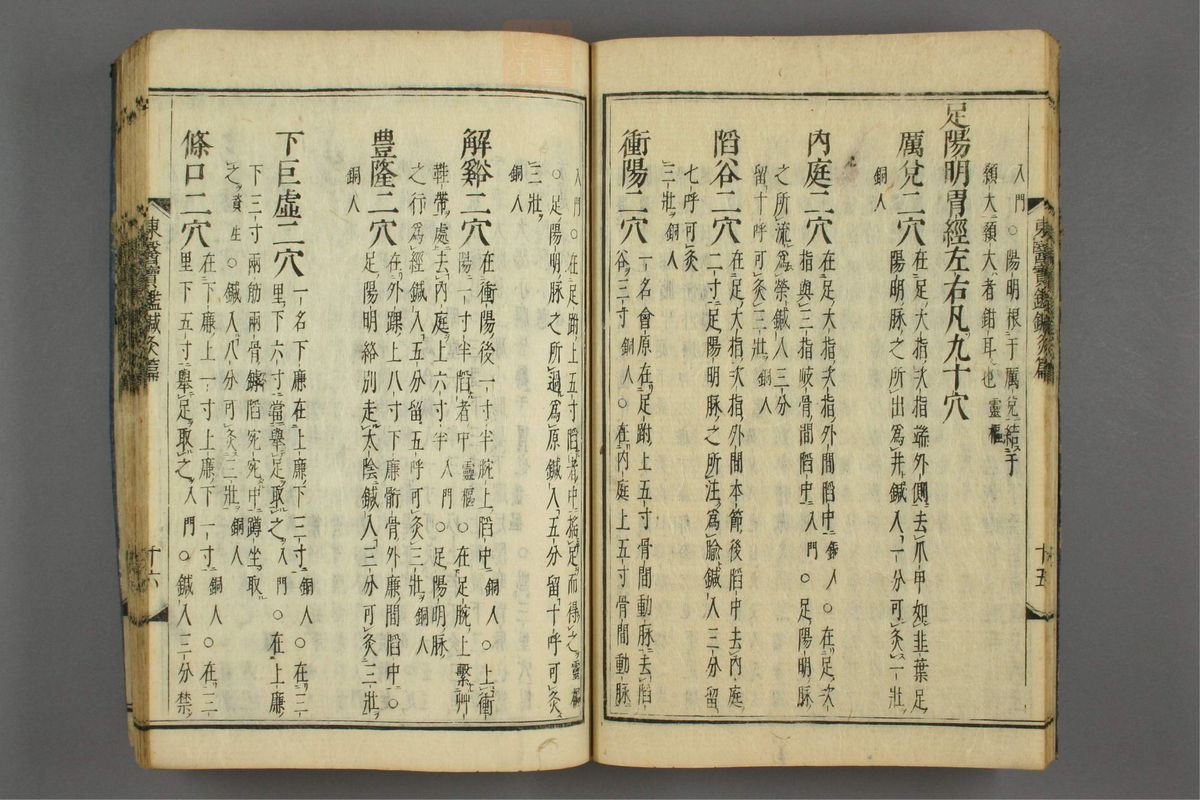 入門○陽明根于厲兌結于
顙大顙大者鉗耳也靈樞
足陽明胃經左右凡九十穴
厲兌二穴在足大指次指端外側去爪甲如韭葉足
陽明脉之所出爲井鍼入一分可灸一壯
銅人
內庭二穴在足大指次指外間陷中銅人○在足次
指與三指岐骨間陷中入門○足陽明脉
之所流爲滎鍼入三分
留十呼可灸三壯銅人
陷谷二穴在足大指次指外間本節後陷中去內庭
二寸足陽明脉之所注爲腧鍼入三分留
七呼可灸
三壯銅人
衝陽二穴一名會原在足跗上五寸骨間動脉去陷
谷三寸銅人○在內庭上五寸骨間動脉
東醫寶鑑鍼灸篇
十五
入門○在足跗上五寸陷者中搖足而得之靈樞
○足陽明脉之所過爲原鍼入五分留十呼可灸
三壯
銅人
解谿二穴在衝陽後一寸半腕上陷中銅人○上衝
陽一寸半陷者中靈樞○在足腕上繫艸
鞋帶處去內庭上六寸半入門○足陽明脉
之行爲經鍼入五分留五呼可灸三壯銅人
豊隆二穴在外踝上八寸下廉胻骨外廉間陷中○
足陽明絡別走太陰鍼入三分可灸三壯
銅人
下巨虛二穴一名下廉在上廉下三寸銅人○在三
里下六寸當擧足取之入門○在上廉
下三寸兩筋兩骨罅陷宛宛中蹲坐取
之資生○鍼入八分可灸三壯銅人
條口二穴在下廉上一寸上廉下一寸銅人○在三
里下五寸擧足取之入門○鍼入三分禁
東醫寶鑑鍼灸篇
十六